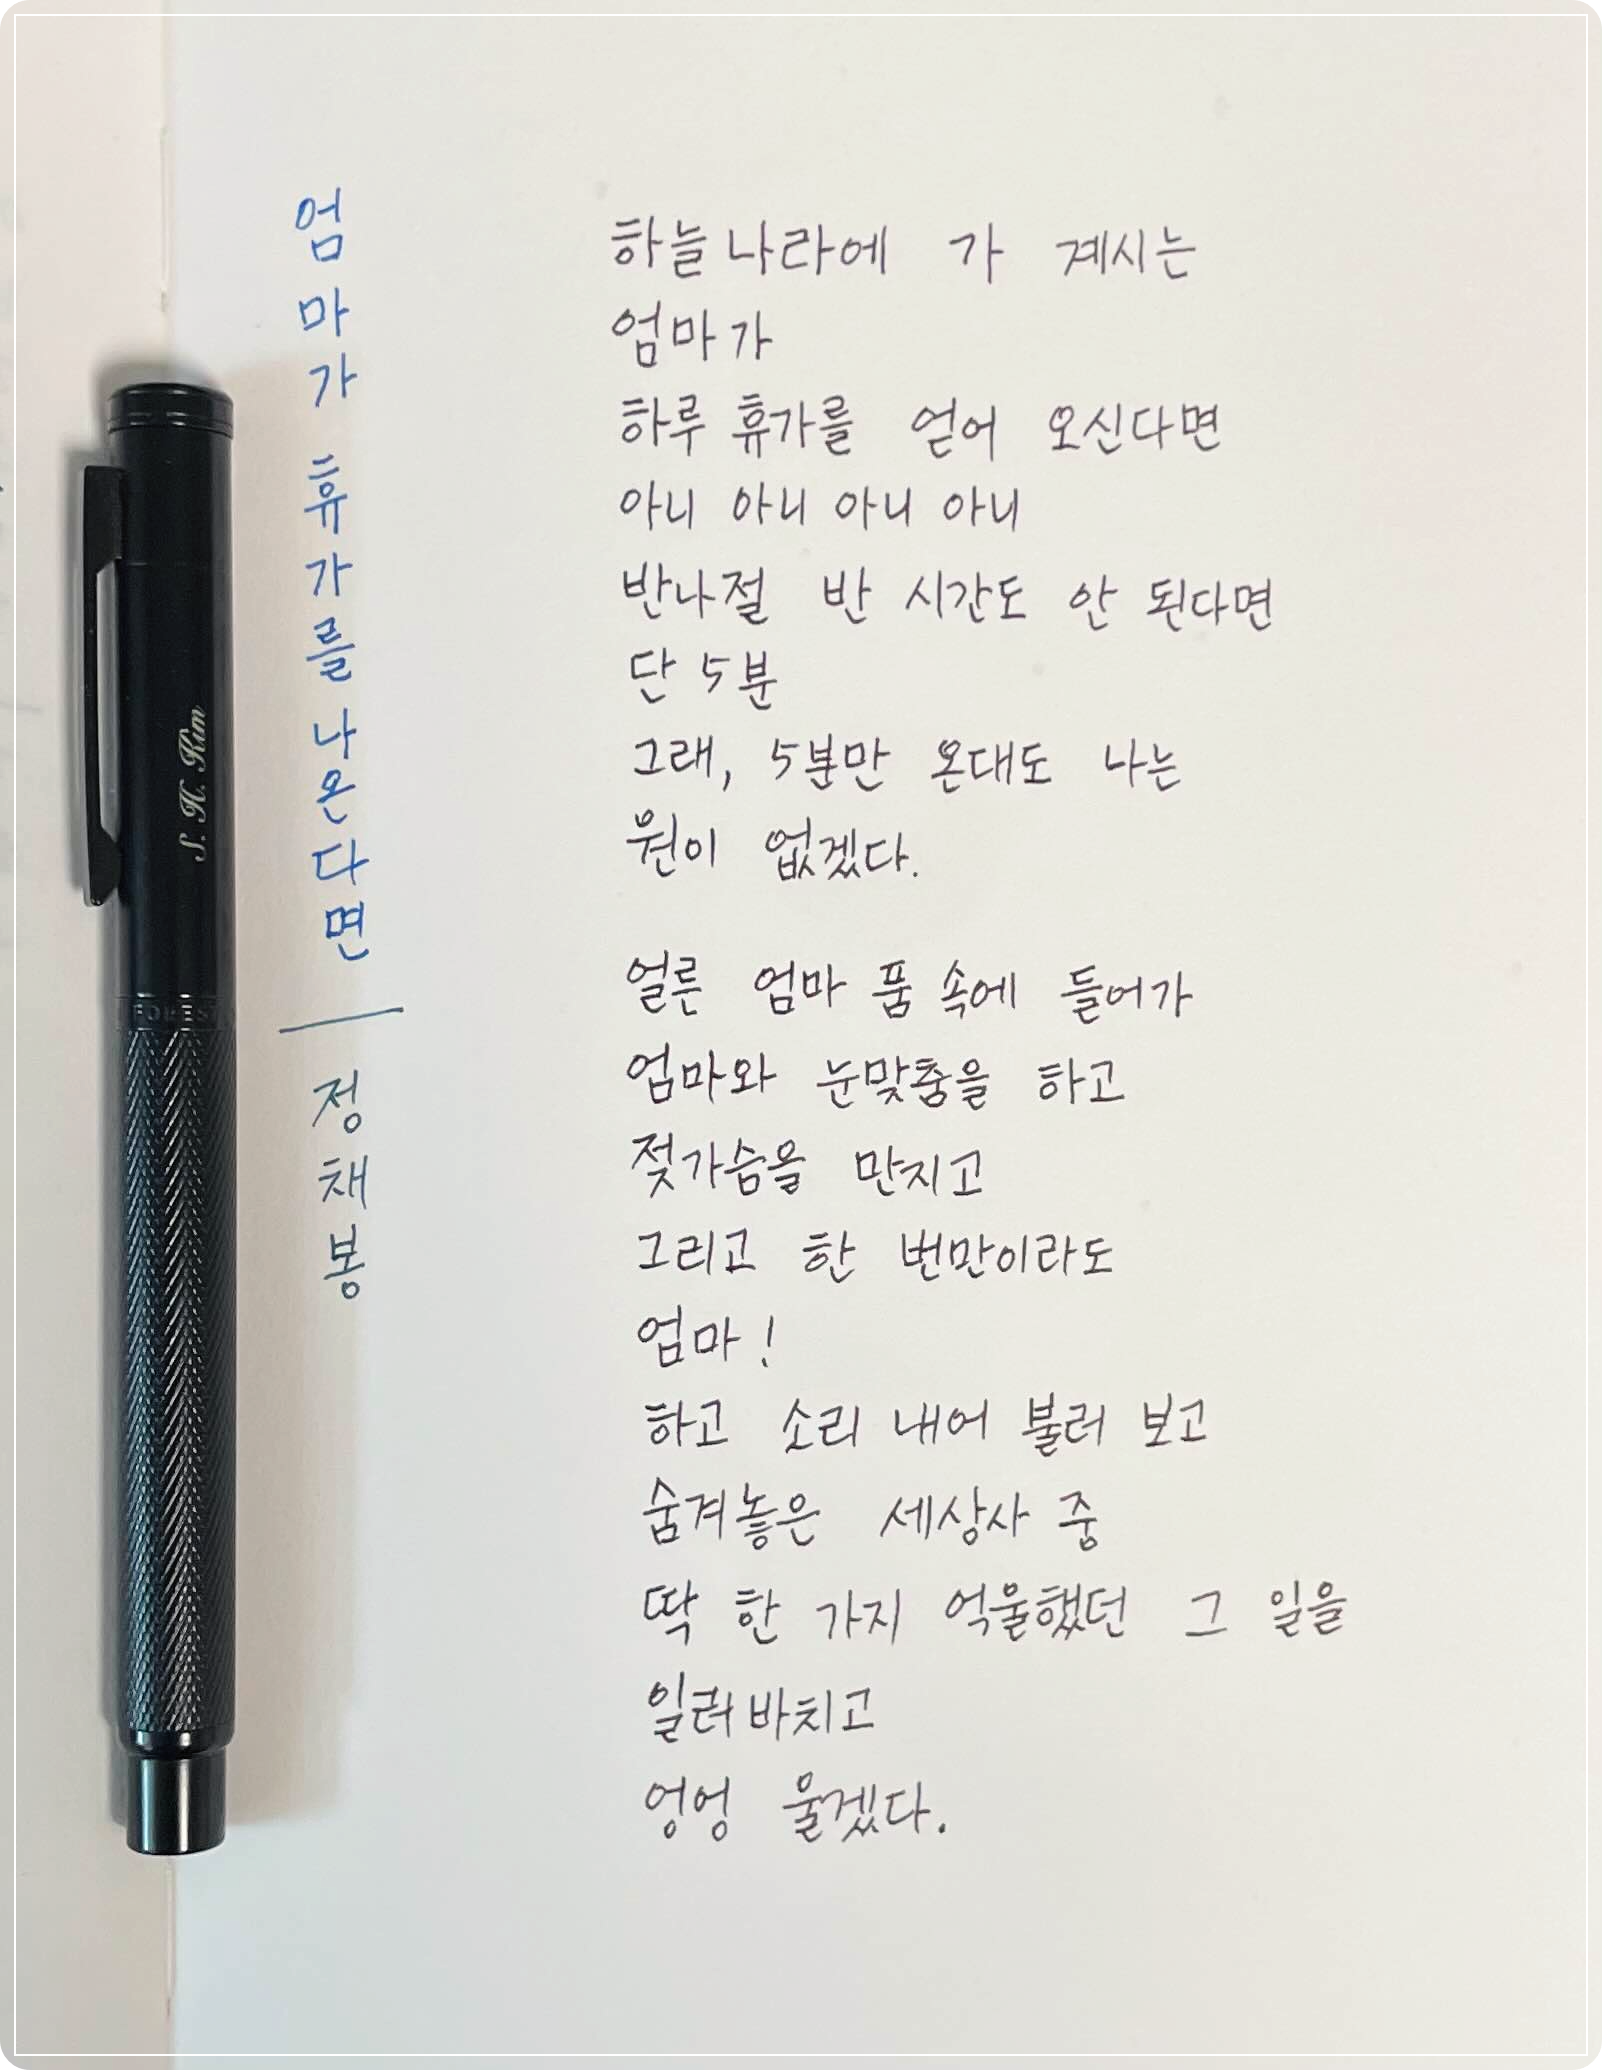 엄마가 휴가를 나온다면
정채봉
하늘나라에 가 계시는
엄마가
하루 휴가를 얻어 오신다면
아니 아니 아니 아니
반나절 반 시간도 안 된다면
단 5분
그래, 5분만 온대도 나는
원이 없겠다.
얼른 엄마 품 속에 들어가
엄마와 눈맞춤을 하고
젖가슴을 만지고
그리고 한 번만이라도
엄마!
하고 소리 내어 불러 보고
숨겨놓은 세상사 중
딱 한 가지 억울했던 그 일을
일러바치고
엉엉 울겠다.
S. H. Kim
FOREST